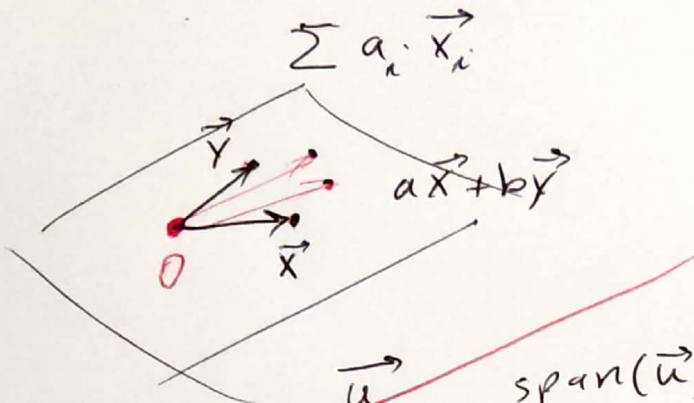 Σ aᵢ · x⃗ᵢ
y⃗
ax⃗ + by⃗
0
x⃗
u⃗
span(u⃗